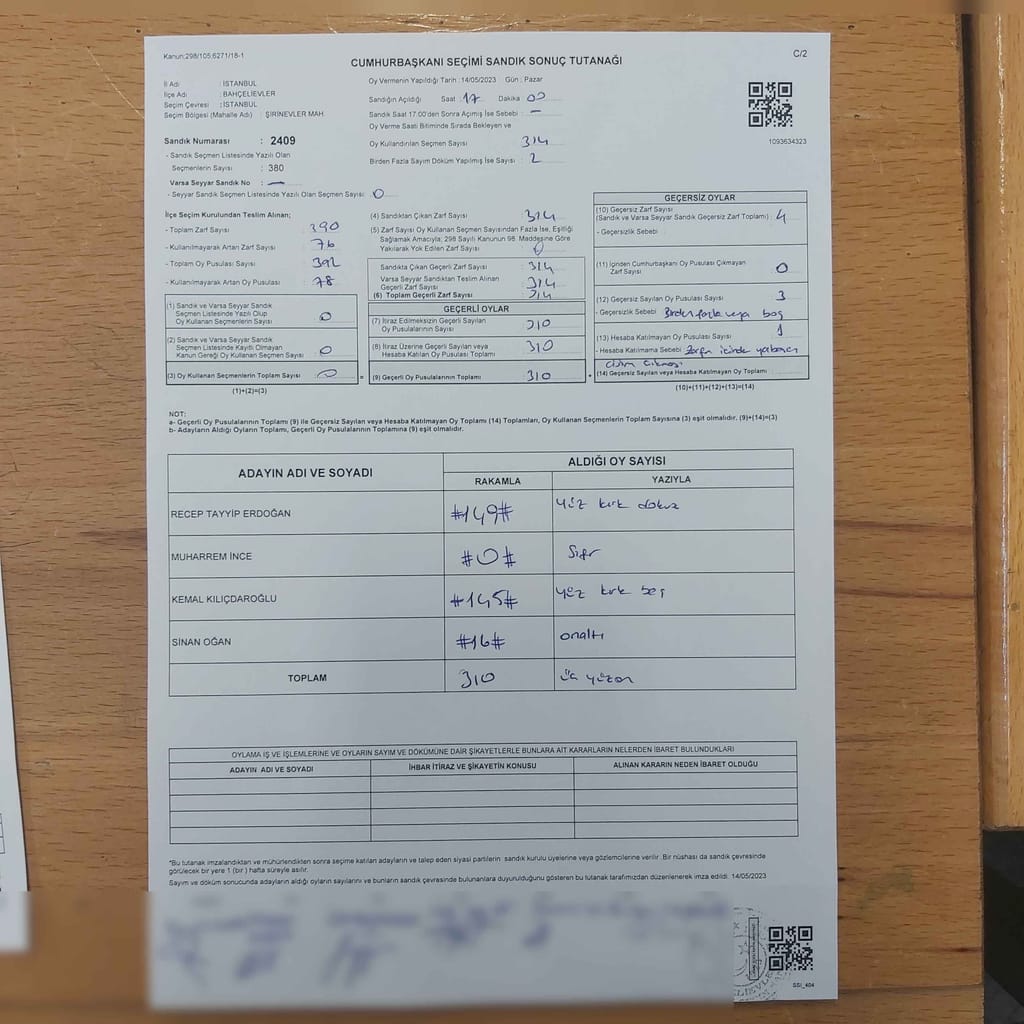 Kanun:298/105;6271/18-1
C/2
CUMHURBAŞKANI SEÇİMİ SANDIK SONUÇ TUTANAĞI
İl Adı : İSTANBUL
İlçe Adı : BAHÇELİEVLER
Seçim Çevresi : İSTANBUL
Seçim Bölgesi (Mahalle Adı) : ŞİRİNEVLER MAH.
Sandık Numarası : 2409
- Sandık Seçmen Listesinde Yazılı Olan
Seçmenlerin Sayısı : 380
Varsa Seyyar Sandık No : —
- Seyyar Sandık Seçmen Listesinde Yazılı Olan Seçmen Sayısı : 0
Oy Vermenin Yapıldığı Tarih : 14/05/2023 Gün : Pazar
Sandığın Açıldığı Saat : 17 Dakika 00
Sandık Saat 17:00'den Sonra Açımış İse Sebebi : —
Oy Verme Saati Bitiminde Sırada Bekleyen ve
Oy Kullandırılan Seçmen Sayısı 314
Birden Fazla Sayım Döküm Yapılmış İse Sayısı : 2
1093634323
İlçe Seçim Kurulundan Teslim Alınan;
- Toplam Zarf Sayısı : 390
- Kullanılmayarak Artan Zarf Sayısı : 76
- Toplam Oy Pusulası Sayısı : 392
- Kullanılmayarak Artan Oy Pusulası : 78
(1) Sandık ve Varsa Seyyar Sandık
Seçmen Listesinde Yazılı Olup
Oy Kullanan Seçmenlerin Sayısı : 0
(2) Sandık ve Varsa Seyyar Sandık
Seçmen Listesinde Kayıtlı Olmayan
Kanun Gereği Oy Kullanan Seçmen Sayısı : 0
(3) Oy Kullanan Seçmenlerin Toplam Sayısı : 0
(1)+(2)=(3)
(4) Sandıktan Çıkan Zarf Sayısı : 314
(5) Zarf Sayısı Oy Kullanan Seçmen Sayısından Fazla İse, Eşitliği
Sağlamak Amacıyla; 298 Sayılı Kanunun 98. Maddesine Göre
Yakılarak Yok Edilen Zarf Sayısı : 0
Sandıkta Çıkan Geçerli Zarf Sayısı : 314
Varsa Seyyar Sandıktan Teslim Alınan
Geçerli Zarf Sayısı : 314
(6) Toplam Geçerli Zarf Sayısı : 314
GEÇERLİ OYLAR
(7) İtiraz Edilmeksizin Geçerli Sayılan
Oy Pusulalarının Sayısı : 310
(8) İtiraz Üzerine Geçerli Sayılan veya
Hesaba Katılan Oy Pusulası Toplamı : 310
= (9) Geçerli Oy Pusulalarının Toplamı : 310 +
GEÇERSİZ OYLAR
(10) Geçersiz Zarf Sayısı
(Sandık ve Varsa Seyyar Sandık Geçersiz Zarf Toplamı) : 4
- Geçersizlik Sebebi :
(11) İçinden Cumhurbaşkanı Oy Pusulası Çıkmayan
Zarf Sayısı : 0
(12) Geçersiz Sayılan Oy Pusulası Sayısı : 3
- Geçersizlik Sebebi : Birden fazla veya boş
(13) Hesaba Katılmayan Oy Pusulası Sayısı : 1
- Hesaba Katılmama Sebebi : Zarfın içinde yabancı
cisim çıkması
(14) Geçersiz Sayılan veya Hesaba Katılmayan Oy Toplamı :
(10)+(11)+(12)+(13)=(14)
NOT:
a- Geçerli Oy Pusulalarının Toplamı (9) ile Geçersiz Sayılan veya Hesaba Katılmayan Oy Toplamı (14) Toplamları, Oy Kullanan Seçmenlerin Toplam Sayısına (3) eşit olmalıdır. (9)+(14)=(3)
b- Adayların Aldığı Oyların Toplamı, Geçerli Oy Pusulalarının Toplamına (9) eşit olmalıdır.
ADAYIN ADI VE SOYADI
ALDIĞI OY SAYISI
RAKAMLA YAZIYLA
RECEP TAYYİP ERDOĞAN #149# Yüz kırk dokuz
MUHARREM İNCE #0# Sıfır
KEMAL KILIÇDAROĞLU #145# yüz kırk beş
SİNAN OĞAN #16# onaltı
TOPLAM 310 üç yüzon
OYLAMA İŞ VE İŞLEMLERİNE VE OYLARIN SAYIM VE DÖKÜMÜNE DAİR ŞİKAYETLERLE BUNLARA AİT KARARLARIN NELERDEN İBARET BULUNDUKLARI
ADAYIN ADI VE SOYADI İHBAR İTİRAZ VE ŞİKAYETİN KONUSU ALINAN KARARIN NEDEN İBARET OLDUĞU
*Bu tutanak imzalandıktan ve mühürlendikten sonra seçime katılan adayların ve talep eden siyasi partilerin sandık kurulu üyelerine veya gözlemcilerine verilir. Bir nüshası da sandık çevresinde
görülecek bir yere 1 (bir) hafta süreyle asılır.
Sayım ve döküm sonucunda adayların aldığı oyların sayılarını ve bunların sandık çevresinde bulunanlara duyurulduğunu gösteren bu tutanak tarafımızdan düzenlenerek imza edildi. 14/05/2023
SSI_404